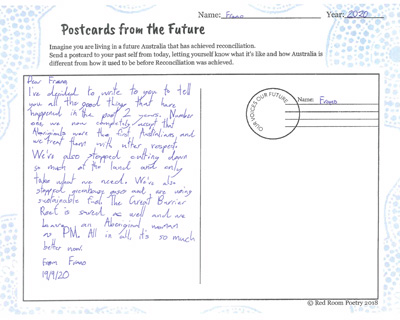 Name: Frano Year: 2020
Postcards from the Future
Imagine you are living in a future Australia that has achieved reconciliation.
Send a postcard to your past self from today, letting yourself know what it's like and how Australia is
different from how it used to be before Reconciliation was achieved.
Dear Frano
I've decided to write to you to tell
you all the good thing that have
happened in the past 2 years. Number
one we now completely accept that
Aboriginals were the first Australians and
we treat them with utter respect.
We've also stopped cutting down
so much of the land and only
take what we need. We've also
stopped greenhouse gases and are using
sustainable fuel. The Great Barrier
Reef is saved as well and we
have an Aboriginal woman
as PM. All is all, it's so much
better now.
From Frano
19/9/20
OUR VOICES OUR FUTURE
Name: Frano
© Red Room Poetry 2018